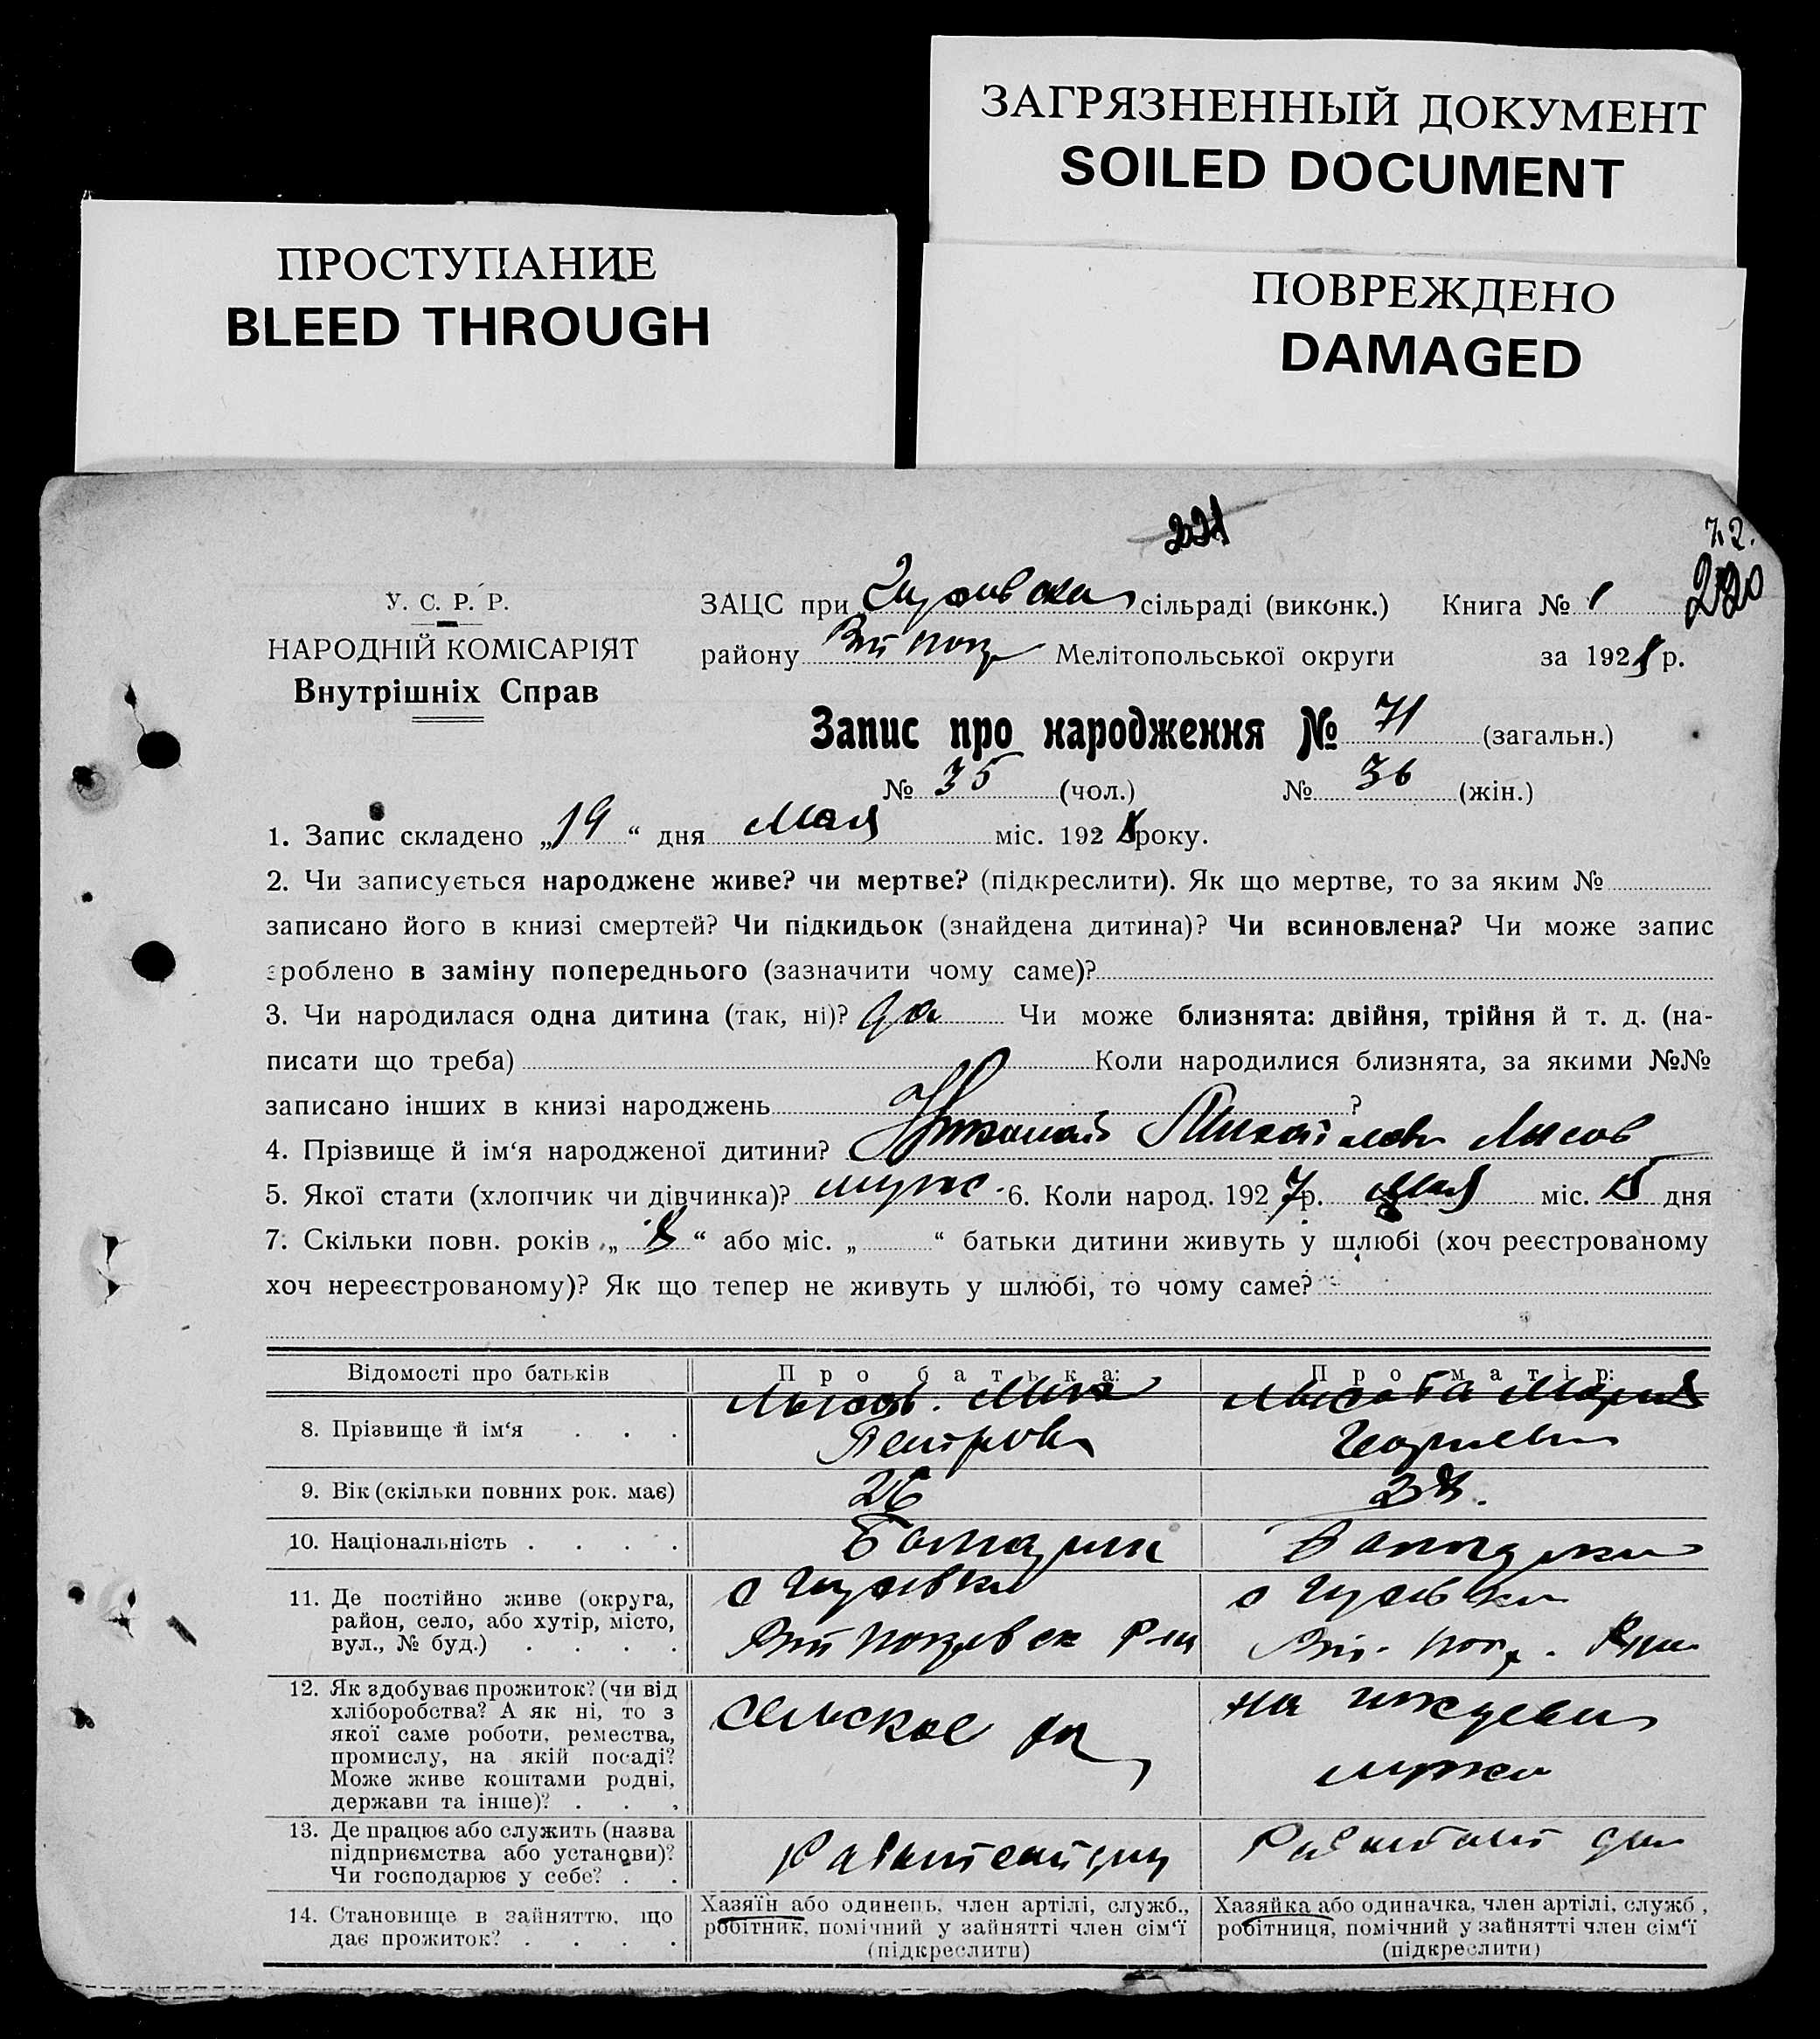 ЗАГРЯЗНЕННЫЙ ДОКУМЕНТ
SOILED DOCUMENT
ПРОСТУПАНИЕ
BLEED THROUGH
ПОВРЕЖДЕНО
DAMAGED
221
72.
220
У. С. Р. Р.
НАРОДНІЙ КОМІСАРІЯТ
Внутрішніх Справ
ЗАЦС при сільраді (виконк.) Книга № 1
району Мелітопольської округи за 192 р.
Запис про народження № 71 (загальн.)
№ 35 (чол.) № 36 (жін.)
1. Запис складено „19“ дня Мая міс. 192 року.
2. Чи записується народжене живе? чи мертве? (підкреслити). Як що мертве, то за яким №
записано його в книзі смертей? Чи підкидьок (знайдена дитина)? Чи всиновлена? Чи може запис
зроблено в заміну попереднього (зазначити чому саме)?
3. Чи народилася одна дитина (так, ні)? да Чи може близнята: двійня, трійня й т. д. (на-
писати що треба) Коли народилися близнята, за якими №№
записано інших в книзі народжень ?
4. Прізвище й ім‘я народженої дитини? Лысов
5. Якої стати (хлопчик чи дівчинка)? муж. 6. Коли народ. 1927р. Мая міс. 15 дня
7. Скільки повн. років „ “ або міс. „ “ батьки дитини живуть у шлюбі (хоч реєстрованому
хоч нереєстрованому)? Як що тепер не живуть у шлюбі, то чому саме?
Відомості про батьків Про батька: Про матір:
8. Прізвище й ім‘я . . . Лысов. Мих Лысова Мария
Петров Георгиев
9. Вік (скільки повних рок. має) 26
10. Національність . . . .
11. Де постійно живе (округа,
район, село, або хутір, місто,
вул., № буд.) . . . .
12. Як здобуває прожиток? (чи від
хліборобства? А як ні, то з
якої саме роботи, ремества,
промислу, на якій посаді?
Може живе коштами родні,
держави та інше)? . . .
сельское хоз
на иждевен
мужа
13. Де працює або служить (назва
підприємства або установи)?
Чи господарює у себе? . .
14. Становище в зайняттю, що
дає прожиток? . . . .
Хазяїн або одинець, член артілі, служб.,
робітник, помічний у зайнятті член сім‘ї
(підкреслити)
Хазяйка або одиначка, член артілі, служб ,
робітниця, помічний у зайнятті член сім‘ї
(підкреслити)